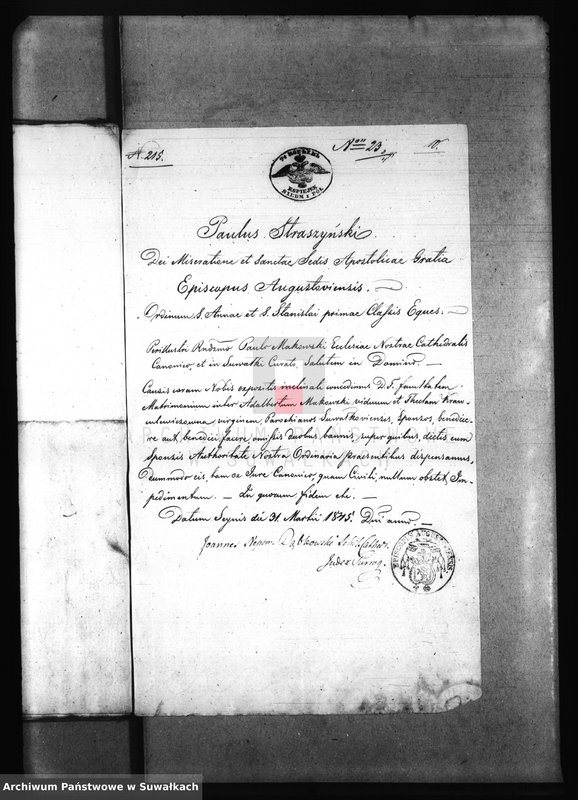 N. 215.
Non 23.
KOPIEJEK
Paulus Straszyński
Dei Miseratione et Sanctae Sedis Apostolicae Gratia
Episcopus Augustoviensis. —
Ordinum S. Annae et S. Stanislai primae Classis Eques. —
Perillustri Rndzmo Paulo Makowski Ecclesiae Nostrae Cathedralis
Canonico, et in Suwałki Curato, Salutem in Domino. —
Causis coram Nobis expositis inclinati concedimus D. T. facultatem
Matrimonium inter Adalbertum Makowski viduum et Theclam
virginem Parochianos Suwalkovienses, Sponsos, benedice-
re aut benedici facere, omissis duobus bannis, super quibus, dictis cum
Sponsis Authoritate Nostra Ordinaria praesentibus dispensamus,
dummodo eis, tam ex Jure Canonico, quam Civili, nullum obstet Im-
pedimentum. — In quorum fidem etc. —
Datum Seynis die 31. Martii 1845. Dni anno. —
Joannes Nepom.
Judex Surrog.
Archiwum Państwowe w Suwałkach